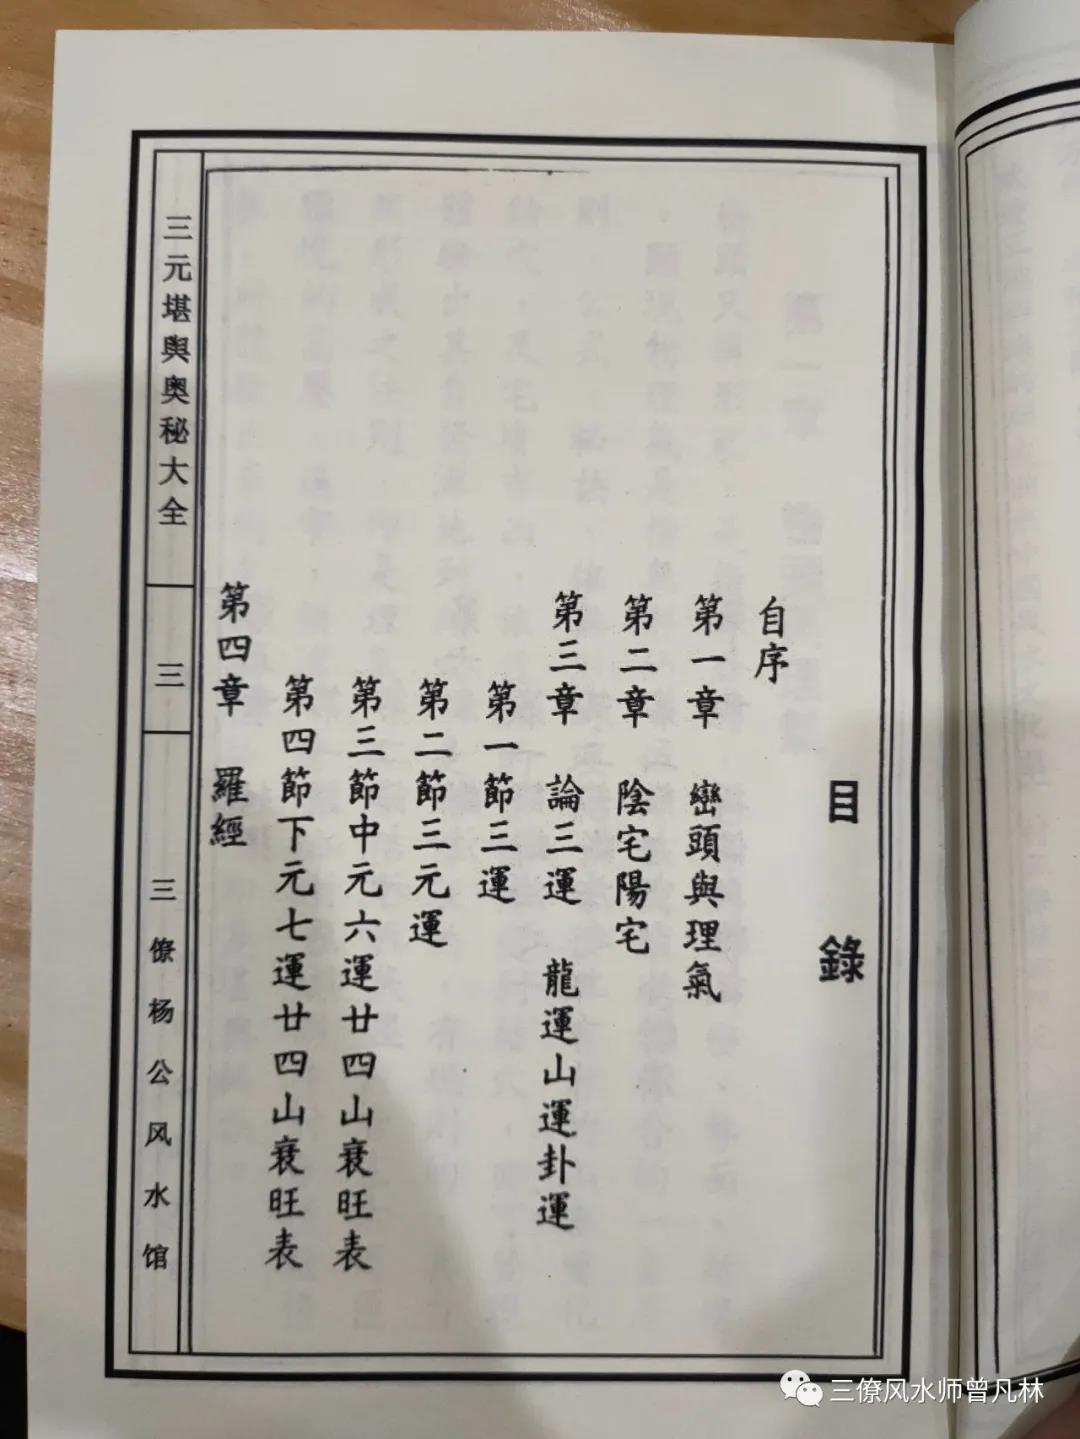 目錄
自序
第一章 巒頭與理氣
第二章 陰宅陽宅
第三章 論三運 龍運山運卦運
第一節三運
第二節三元運
第三節中元六運廿四山衰旺表
第四節下元七運廿四山衰旺表
第四章 羅經
三元堪舆奥秘大全
三
三僚杨公风水馆
三僚风水师曾凡林